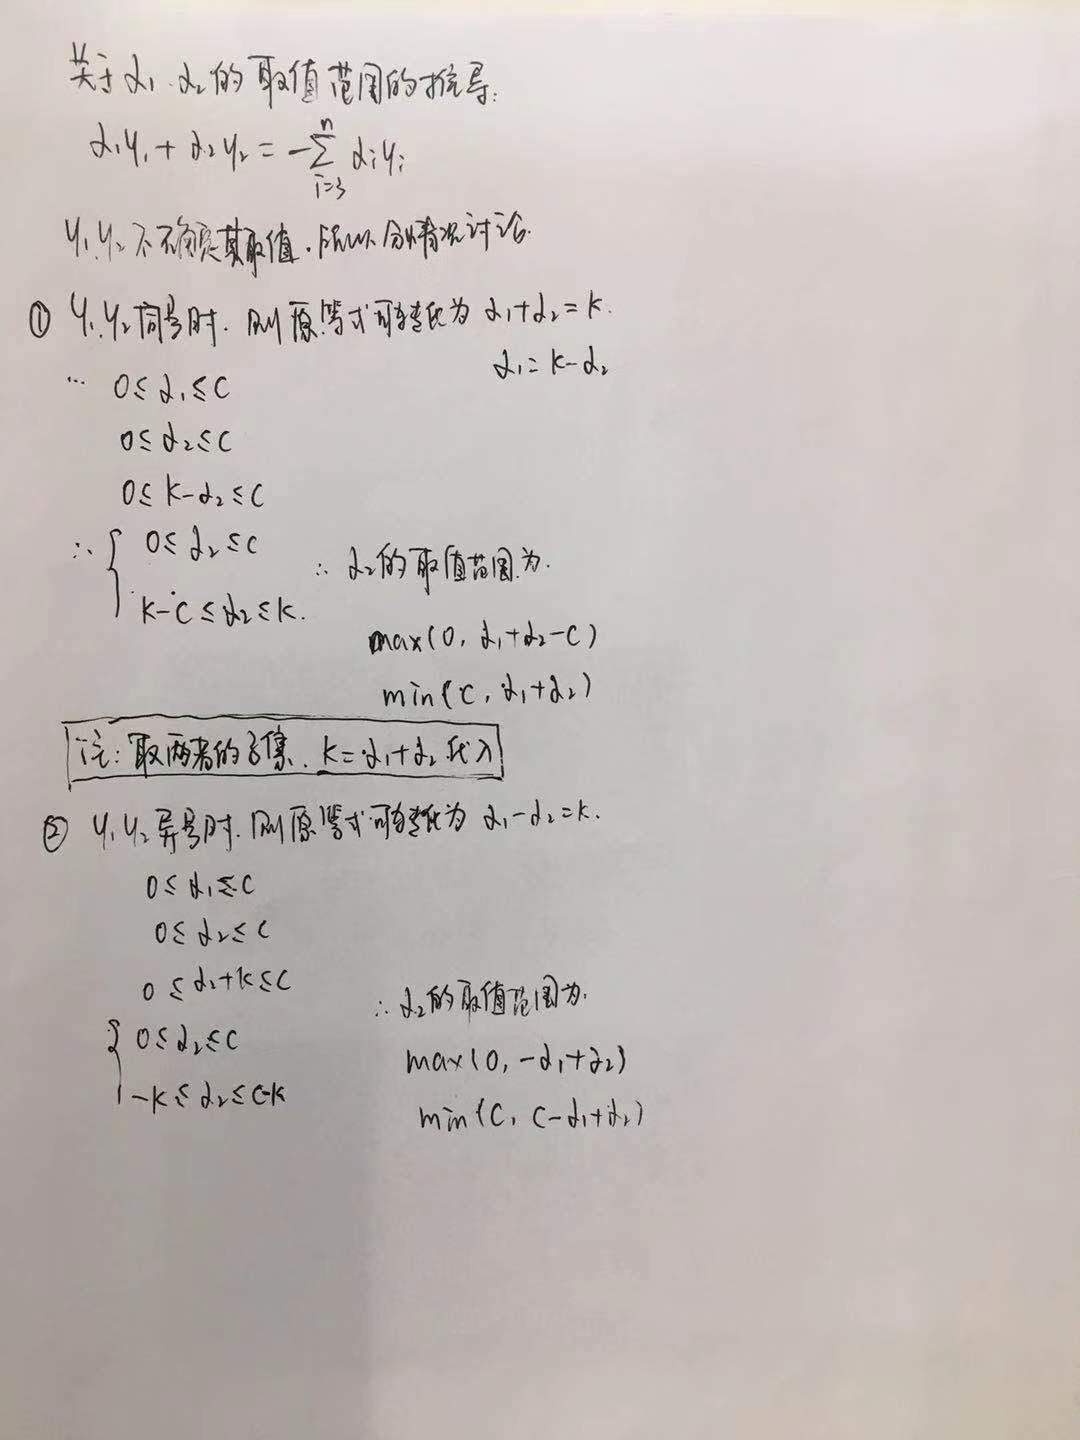 关于α₁.α₂的取值范围的推导:
α₁y₁+α₂y₂=-∑ⁿᵢ₌₃ αᵢyᵢ
y₁.y₂不确定其取值.所以分情况讨论.
① y₁.y₂同号时.则原等式可转化为 α₁+α₂=k.
α₁=k-α₂
∵ 0≤α₁≤C
0≤α₂≤C
0≤k-α₂≤C
∴ { 0≤α₂≤C
k-C≤α₂≤k.
∴ α₂的取值范围为.
max(0, α₁+α₂-C)
min(C, α₁+α₂)
注: 取两者的子集. k=α₁+α₂代入
② y₁y₂异号时.则原等式可转化为 α₁-α₂=k.
0≤α₁≤C
0≤α₂≤C
0≤α₂+k≤C
{ 0≤α₂≤C
-k≤α₂≤C-k
∴ α₂的取值范围为.
max(0, -α₁+α₂)
min(C, C-α₁+α₂)